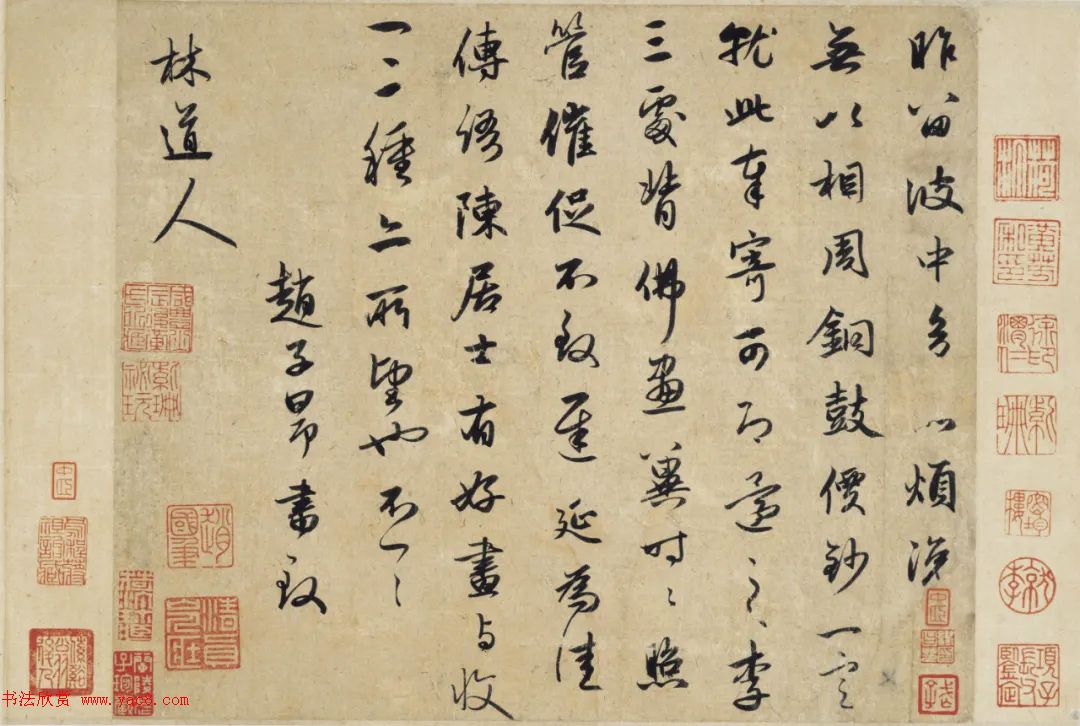 昨留彼中以煩
無以相周銅鼓價鈔一定
就此奉寄可即還之李
三處背佛畫冀時〻照
管催促不致遲延為佳
傳語陳居士有好畫与收
一二種亦所望也不一〻
趙子昂書致
林道人
书法欣赏 www.yac8.com